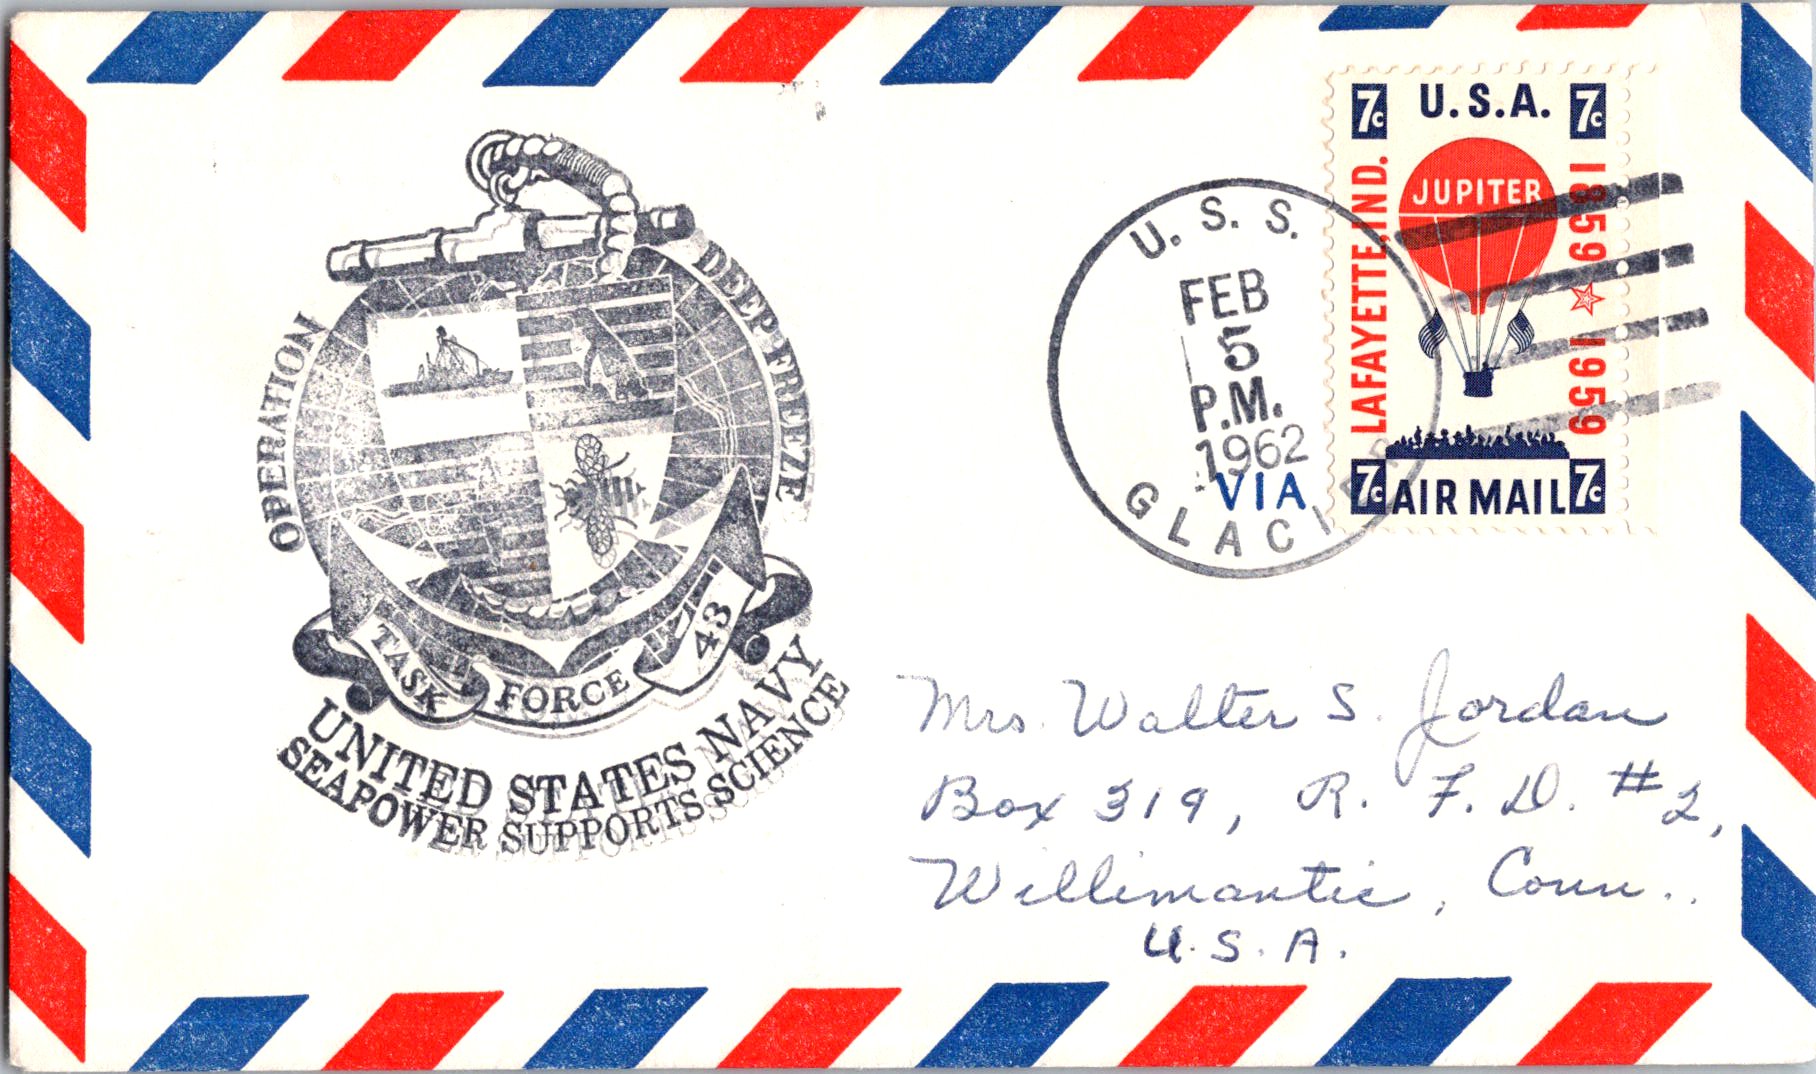 OPERATION DEEP FREEZE
TASK FORCE 43
UNITED STATES NAVY
SEAPOWER SUPPORTS SCIENCE
U. S. S. GLACIER
FEB
5
P.M.
1962
VIA
7c U.S.A. 7c
LAFAYETTE, IND.
JUPITER
1859 ☆ 1959
7c AIR MAIL 7c
Mrs. Walter S. Jordan
Box 319, R. F. D. #2,
Willimantic, Conn..
U. S. A.